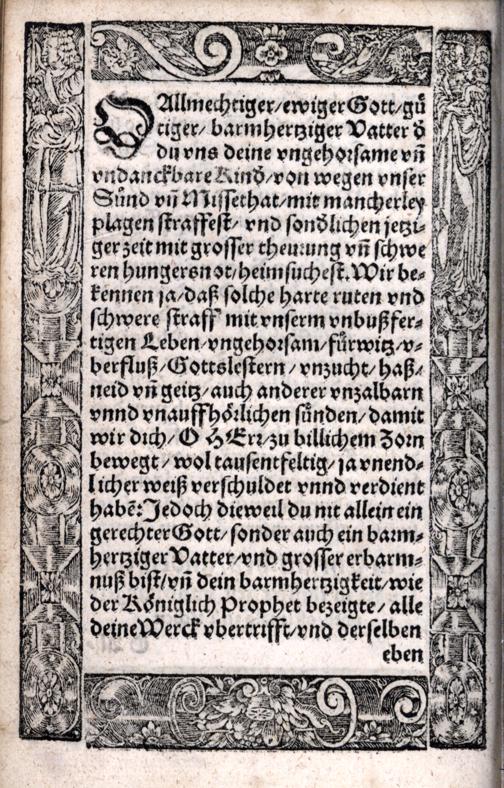 O Allmechtiger/ewiger Gott/guͤ
tiger/ barmhertziger Vatter d̄
du vns deine vngehorsame vn̄
vndanckbare Kind/von wegen vnser
Sünd vn̄ Missethat/mit mancherley
plagen straffest/ vnd sondlichen jetzi-
ger zeit mit grosser theurung vn̄ schwe
ren hungersnot/heimsuchest. Wir be-
kennen ja/daß solche harte ruten vnd
schwere straff mit vnserm vnbußfer-
tigen Leben/vngehorsam/fürwitz/v-
berfluß/Gottslestern/ vnzucht/ haß/
neid vn̄ geitz/auch anderer vnzalbarn
vnnd vnauffhörlichen sünden/damit
wir dich/O HErr/zu billichem Zorn
bewegt/ wol tausentfeltig/ ja vnend-
licher weiß verschuldet vnnd verdient
habē: Jedoch dieweil du nit allein ein
gerechter Gott/ sonder auch ein barm-
hertziger Vatter/vnd grosser erbarm-
nuß bist/vn̄ dein barmhertzigkeit/wie
der Königlich Prophet bezeigte/ alle
deine Werck vbertrifft/vnd derselben
eben